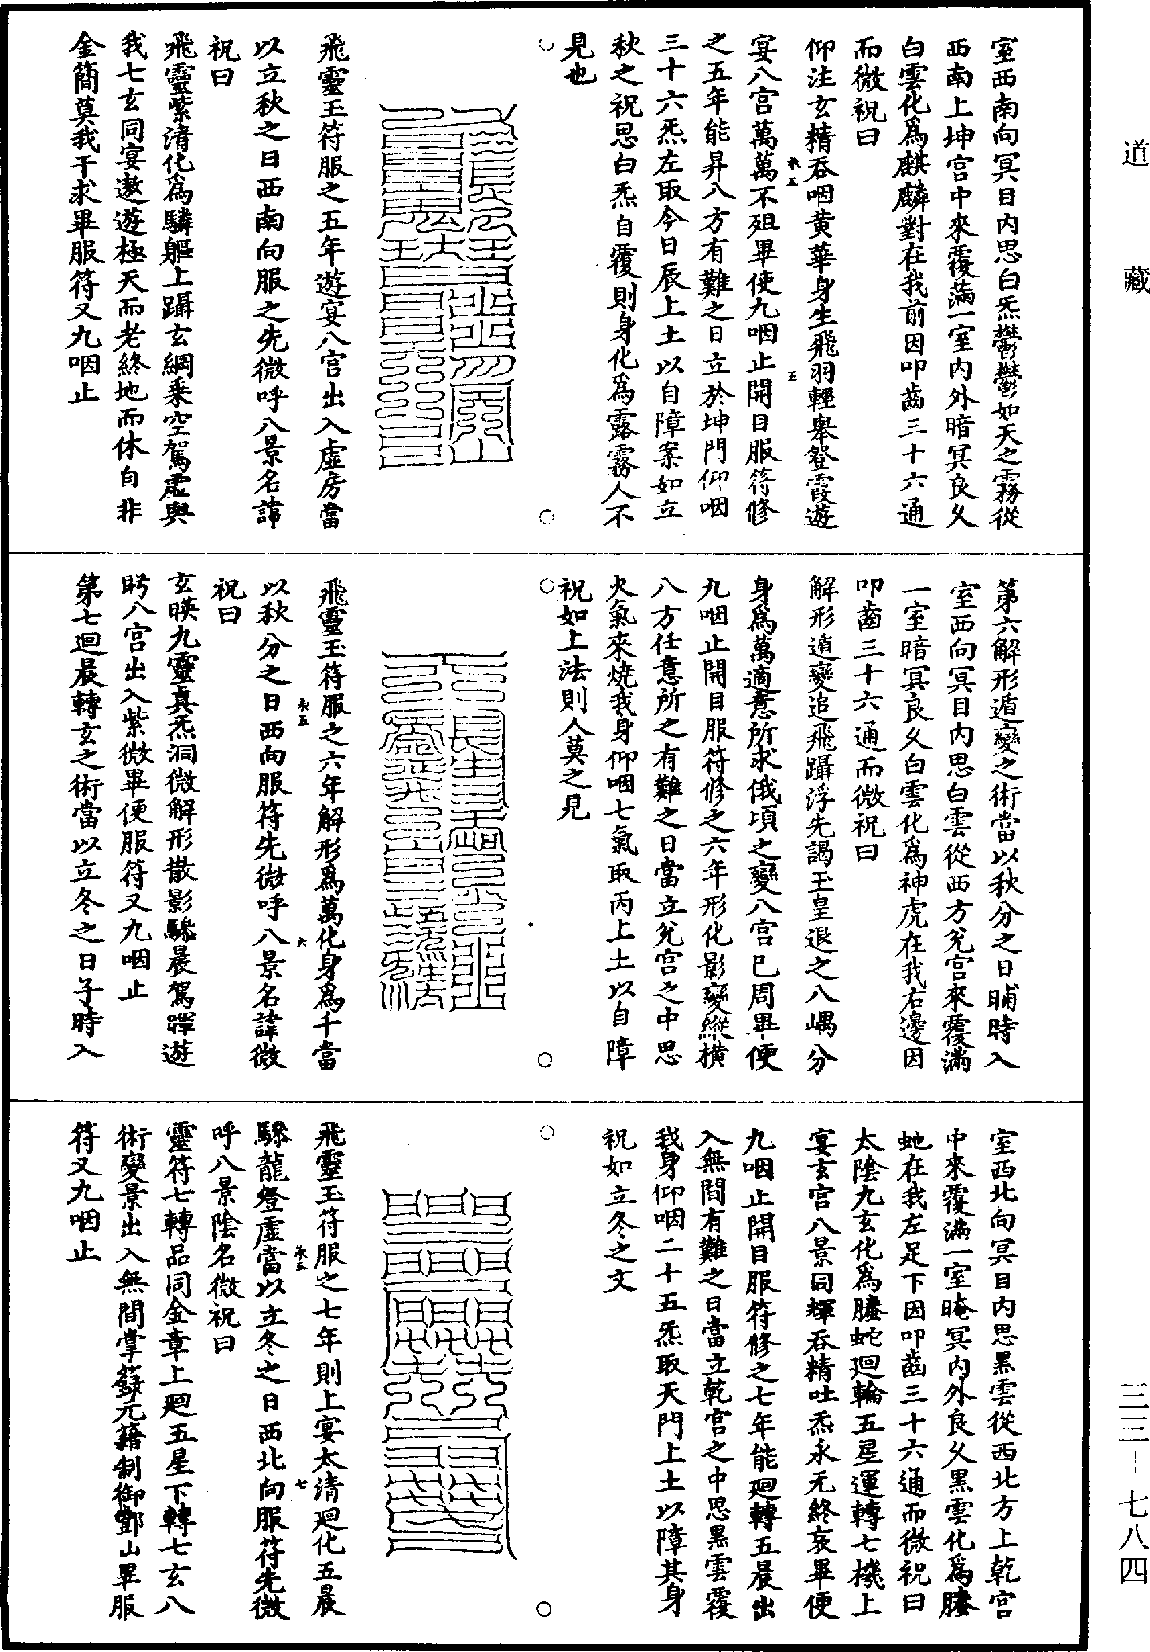 道藏
三三-七八四
室西南向冥目内思白炁鬱鬱如天之霧從
西南上坤宮中來覆滿一室内外暗冥良久
白雲化爲麒麟對在我前因叩齒三十六通
而微祝曰
仰注玄精吞咽黄華身生飛羽輕舉登霞遊
宴八宮萬萬不殂畢便九咽止開目服符修
之五年能昇八方有難之日立於坤門仰咽
三十六炁左取今日辰上土以自障案如立
秋之祝思白炁自覆則身化爲露霧人不
見也
飛靈玉符服之五年遊宴八宮出入虛房當
以立秋之日西南向服之先微呼八景名諱
祝曰
飛靈紫清化爲驎軀上躡玄綱乘空駕虛與
我七玄同宴遨遊極天而老終地而休自非
金簡莫我干求畢服符又九咽止
第六解形遁變之術當以秋分之日晡時入
室西向冥目内思白雲從西方兌宮來覆滿
一室暗冥良久白雲化爲神虎在我右邊因
叩齒三十六通而微祝曰
解形遁變追飛躡浮先謁玉皇退之八嵎分
身爲萬適意所求俄頃之變八宮已周畢便
九咽止開目服符修之六年形化影變縱橫
八方任意所之有難之日當立兌宮之中思
火氣來燒我身仰咽七氣取丙上土以自障
祝如上法則人莫之見
飛靈玉符服之六年解形爲萬化身爲千當
以秋分之日西向服符先微呼八景名諱微
祝曰
玄暎九靈真炁洞微解形散影驂晨駕暉遊
眄八宮出入紫微畢便服符又九咽止
第七迴晨轉玄之術當以立冬之日子時入
室西北向冥目内思黑雲從西北方上乾宮
中來覆滿一室晻冥内外良久黑雲化爲螣
虵在我左足下因叩齒三十六通而微祝曰
太陰九玄化爲螣蛇迴輪五星運轉七機上
宴玄宮八景同輝吞精吐炁永无終哀畢便
九咽止開目服符修之七年能迴轉五晨出
入無間有難之日當立乾宮之中思黑雲覆
我身仰咽二十五炁取天門上土以障其身
祝如立冬之文
飛靈玉符服之七年則上宴太清迴化五晨
驂龍登虛當以立冬之日西北向服符先微
呼八景陰名微祝曰
靈符七轉品同金章上迴五星下轉七玄八
術變景出入無間掌籙元籍制御酆山畢服
符又九咽止